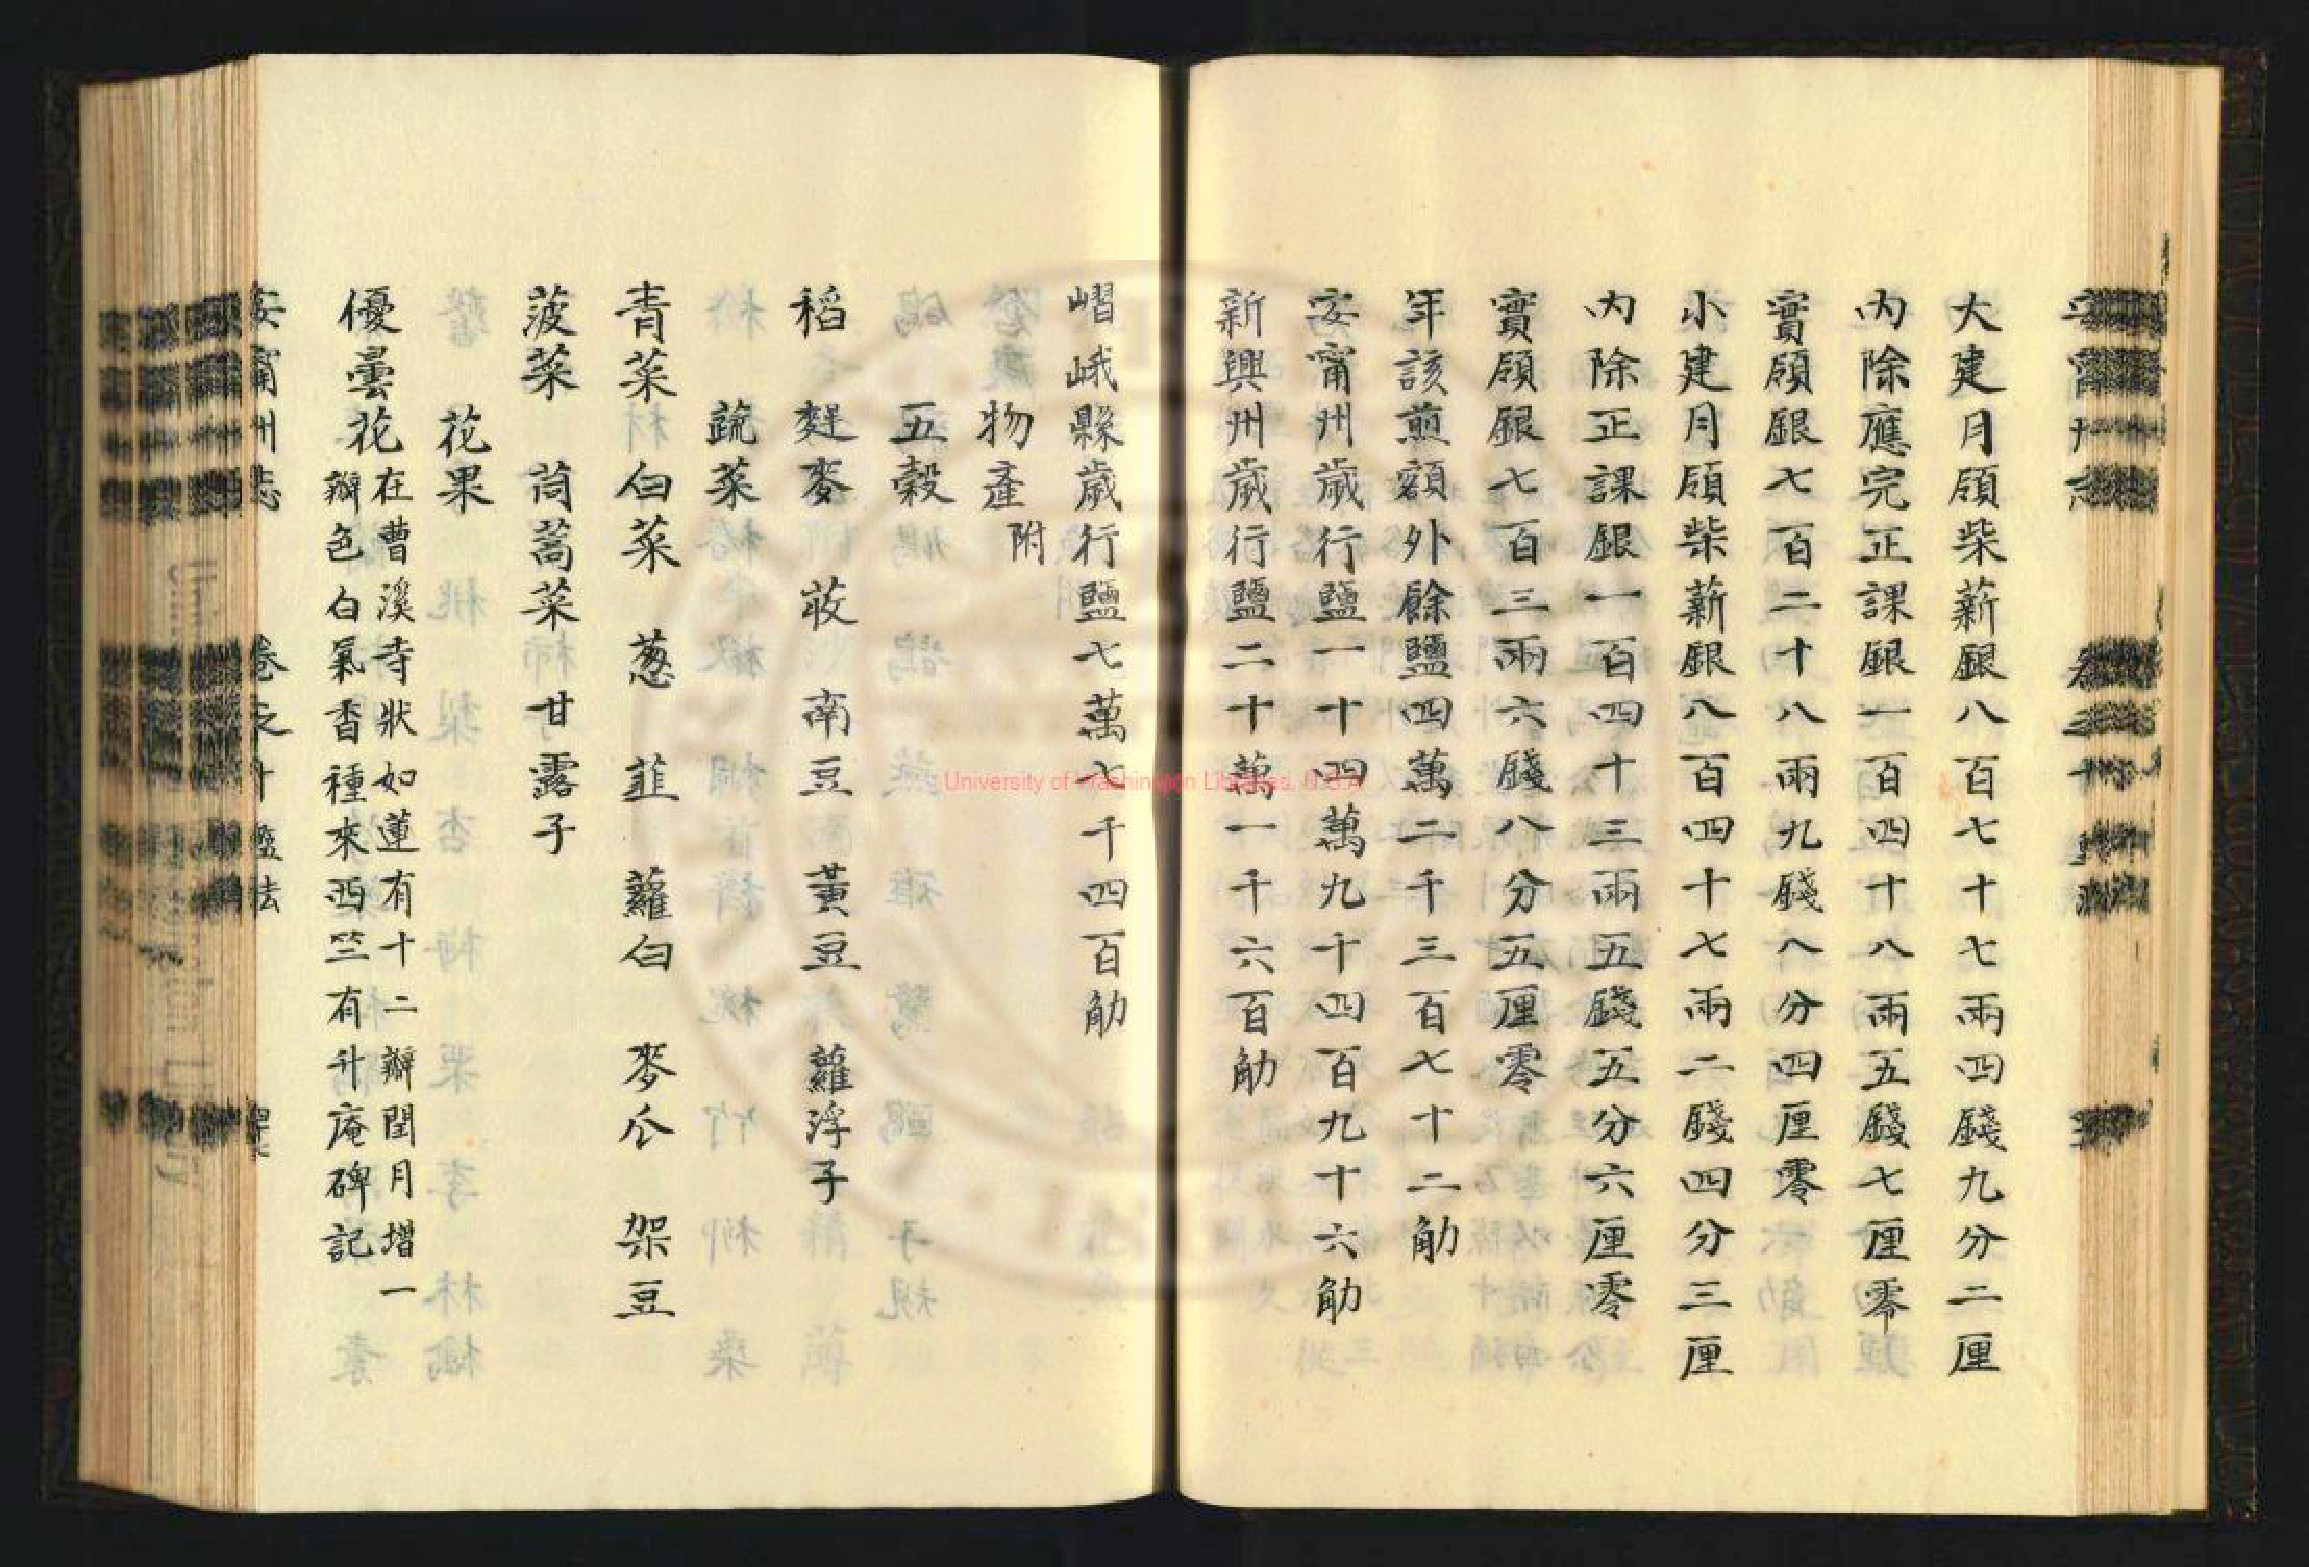 大建月領柴薪銀八百七十七兩四錢九分二厘
內除應完正課銀一百四十八兩五錢七厘零
實領銀七百二十八兩九錢八分四厘零
小建月領柴薪銀八百四十七兩二錢四分三厘
內除正課銀一百四十三兩五錢五分六厘零
實領銀七百三兩六錢八分五厘零
年該煎額外餘鹽四萬二千三百七十二觔
安甯州歲行鹽一十四萬九十四百九十六觔
新興州歲行鹽二十萬一千六百觔
嶍峨縣歲行鹽七萬七千四百觔
物產附
五穀
稻 麰麥 荍 南豆 黃豆 蘿浮子
蔬菜
青菜 白菜 葱 韮 蘿白 麥瓜 架豆
菠菜 茼蒿菜 甘露子
花果
優曇花在曹溪寺狀如蓮有十二瓣閏月增一
瓣色白氣香種來西竺有升庵碑記
安甯州志 卷之十 鹽法
University of Washington Libraries. U.S.A